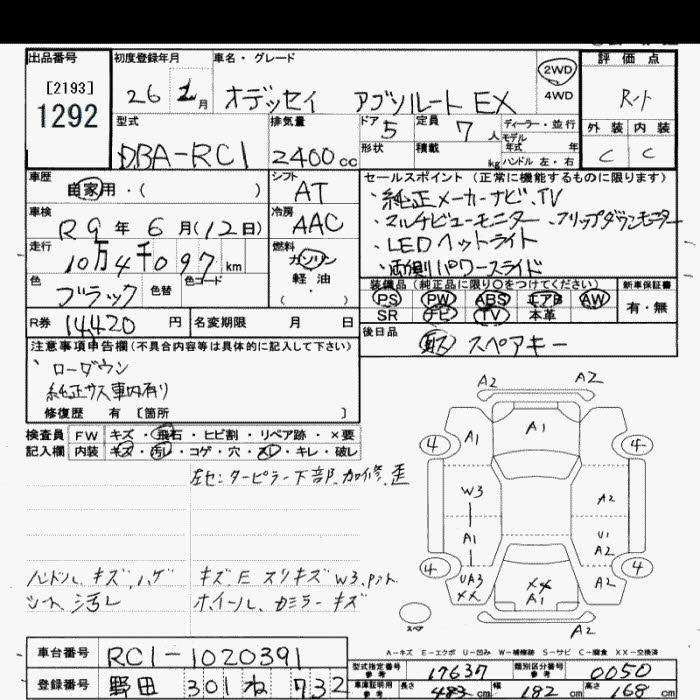 出品番号 初度登録年月 車名・グレード 評価点
[2193]
1292
26 月 オデッセイ アブソルート EX
2WD
4WD
外装 内装
C C
型式 排気量 ドア 5 定員 7 人 ディーラー・並行
モデル年式 年
DBA-RC1 2400cc
形状 積載 kg ハンドル 左・右
車歴 自家用・( ) シフト AT
セールスポイント(正常に機能するものに限ります)
・純正メーカーナビ、TV
・マルチビューモニター、フリップダウンモニター
・LEDヘットライト
・両側パワースライド
車検 R9年 6月(12日) 冷房 AAC
走行 10万4千097km 燃料 ガソリン
軽油
・( )
色 ブラック 色替 色コード
装備品(純正品に限り○をつけてください) 新車保証書
PS PW ABS エアB AW 有・無
SR ナビ TV 本革
R券 14420円 名変期限 月 日
後日品 スペアキー
注意事項申告欄(不具合内容等は具体的に記入して下さい)
・ローダウン
純正サス車内有り
修復歴 有 [箇所 ]
検査員 FW キズ・飛石・ヒビ割・リペア跡・×要
記入欄 内装 キズ・汚レ・コゲ・穴・スレ・キレ・破レ
左センターピラー下部、加修、歪
ハンドル、キズ、ハゲ
シート、汚レ
キズ E スリキズ W3.
ホイール、カミラーキズ
A2 A2
4 A1 A1 4
W3 A2
A1 U1
A2
4 UA3 XX A2 4
XX A1
スペア A2
A-キズ E-エクボ U-凹み W-補修跡 S-サビ C-腐食 XX-交換済
車台番号 RC1-1020391
型式指定番号 参考 17637 類別区分番号 参考 0050
登録番号 野田 301 ね 732
車庫証明用 参考 長さ 483 cm 幅 182 cm 高さ 168 cm